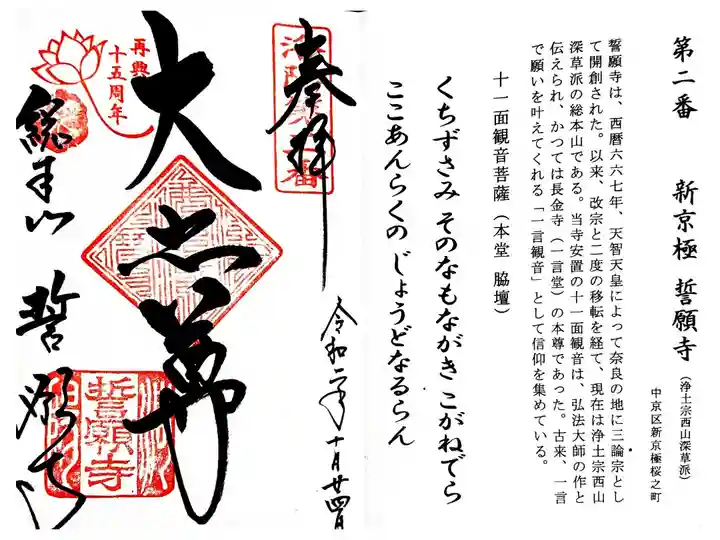 第二番 新京極 誓願寺（浄土宗西山深草派）
中京区新京極桜之町
誓願寺は、西暦六六七年、天智天皇によって奈良の地に三論宗とし
て開創された。以来、改宗と二度の移転を経て、現在は浄土宗西山
深草派の総本山である。当寺安置の十一面観音は、弘法大師の作と
伝えられ、かつては長金寺（一言堂）の本尊であった。古来、一言
で願いを叶えてくれる「一言観音」として信仰を集めている。
十一面観音菩薩（本堂 脇壇）
くちずさみ そのなもながき こがねでら
ここあんらくの じょうどなるらん
奉拝
令和二年十月廿四日
大悲尊
再興
十五周年
総本山 誓願寺
誓願寺